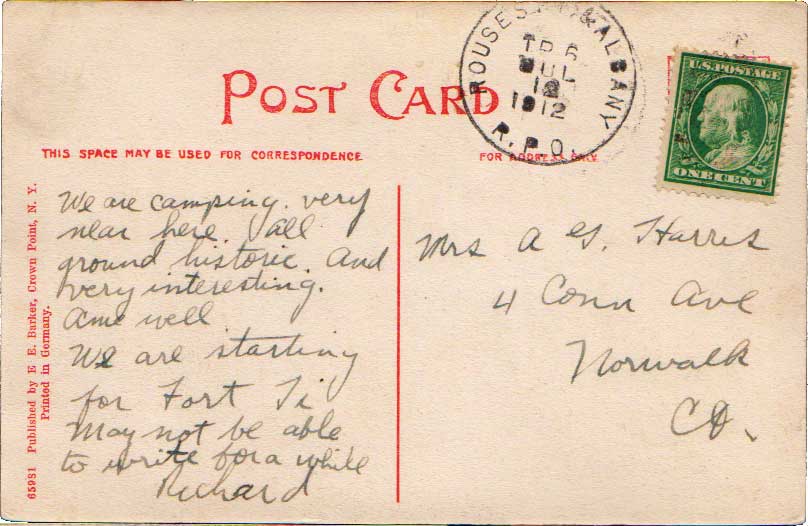 POST CARD
THIS SPACE MAY BE USED FOR CORRESPONDENCE
FOR ADDRESS ONLY
ROUSES & ALBANY
TR 6
JUL
12
1912
R.P.O.
U.S. POSTAGE
ONE CENT
65981 Published by E. E. Barker, Crown Point, N. Y.
Printed in Germany.
We are camping. very
near here all
ground historic. And
very interesting.
well
We are starting
for Fort Ti
May not be able
to write for a while
Richard
Mrs A G. Harris
4 Conn Ave
Norwalk
Ct.